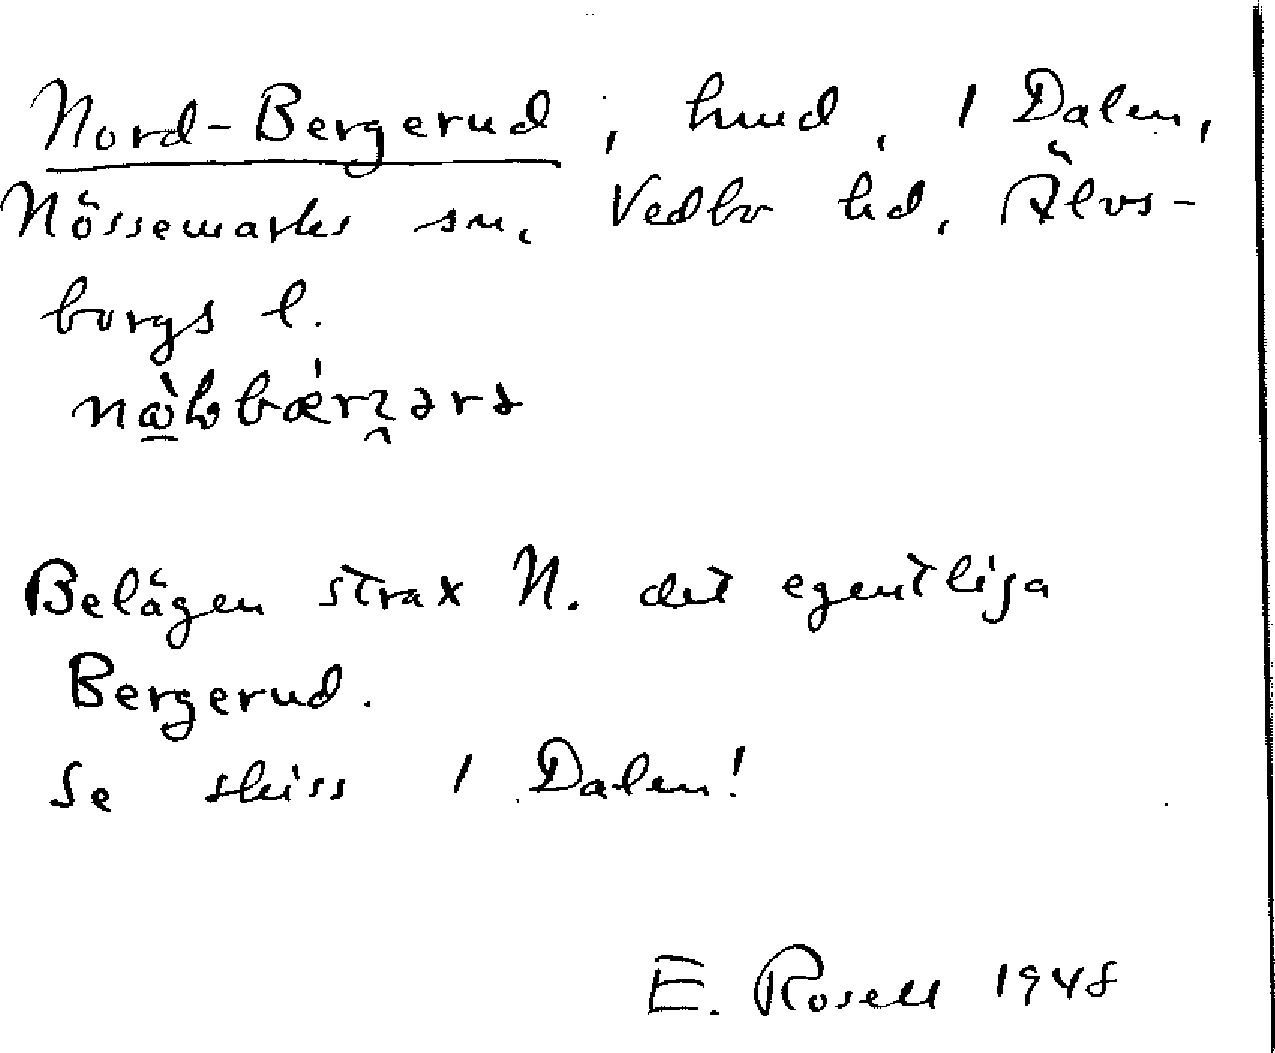 Nord-Bergerud, hmd, 1 Dalen,
Nössemarks sn, Vedbo hd, Älvs-
borgs l.
Belägen strax N. det egentliga
Bergerud.
Se skiss 1 Dalen!
E. Rosell 1948